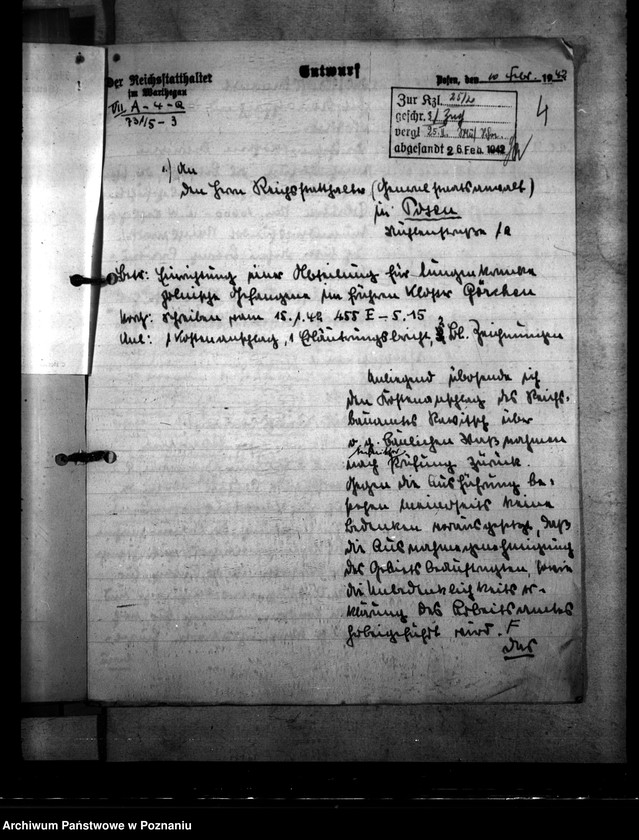 Der Reichsstatthalter
im Warthegau
VII A-4-a
73/15-3
Entwurf
Posen, den 10 Febr. 1942
Zur Kzl. 25/2
geschr.
vergl. 25.2.
abgesandt 26. Feb. 1942
4
1.) An
den Herrn Reichsstatthalter (Generalstaatsanwalt)
in Posen
Mühlenstrasse 1a
Betr: Einrichtung einer Abteilung für lungenkranke
polnische Gefangene im früheren Kloster Görchen
Vorg: Schreiben vom 15.1.42 455 E-5.15
Anl: 1 Kostenanschlag, 1 Erläuterungsbericht, Bl. Zeichnungen
Anliegend übersende ich
den Kostenanschlag des Reichs-
bauamtes Rawitsch über
o. g. baulichen Maßnahmen
nach Prüfung zurück.
Gegen die Ausführung be-
stehen meinerseits keine
Bedenken vorausgesetzt, daß
die Ausnahmegenehmigung
des Gebietsbeauftragten, sowie
die Unbedenklichkeitser-
klärung des Arbeitsamtes
herbeigeführt wird. F
Das
Archiwum Państwowe w Poznaniu